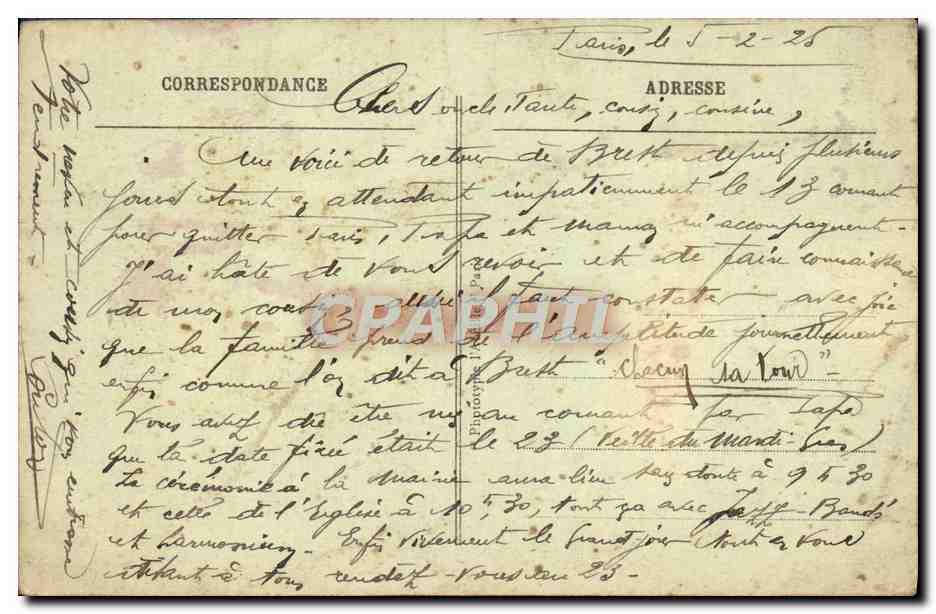 Paris, le 5-2-25
CORRESPONDANCE
ADRESSE
Chers oncle, Tante, cousin, cousine,
Me voici de retour de Brest depuis plusieurs
jours et en attendant impatiemment le 13 courant
pour quitter Paris, Papa et maman m'accompagnent -
J'ai hâte de vous revoir et de faire connaissance
de mon cousin auquel il faut constater avec joie
que la famille prend de l'amplitude journellement
enfin comme l'on dit à Brest "Chacun sa Tour" -
Vous avez dû être mis au courant par Papa
que la date fixée était le 23 (Veille du Mardi-Gras)
La cérémonie à la Mairie aura lieu sans doute à 9 h 30
et celle de l'Eglise à 10 h, 30, tout ça avec Jazz-Band
et harmonium - Enfin vivement le grand jour tout en vous
disant à tous rendez-vous au 23 -
Votre neveu et cousin qui vous embrasse
tendrement -
CPAPHIL